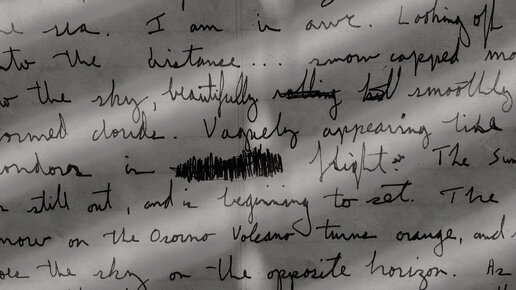 sea. I am in awe. Looking off
the distance... snow capped
the sky, beautifully smoothly
formed clouds. Vaguely appearing like
condors in flight. The Sun
still out, and is beginning to set. The
on the Osorno Volcano turns orange, and
the sky on the opposite horizon. As